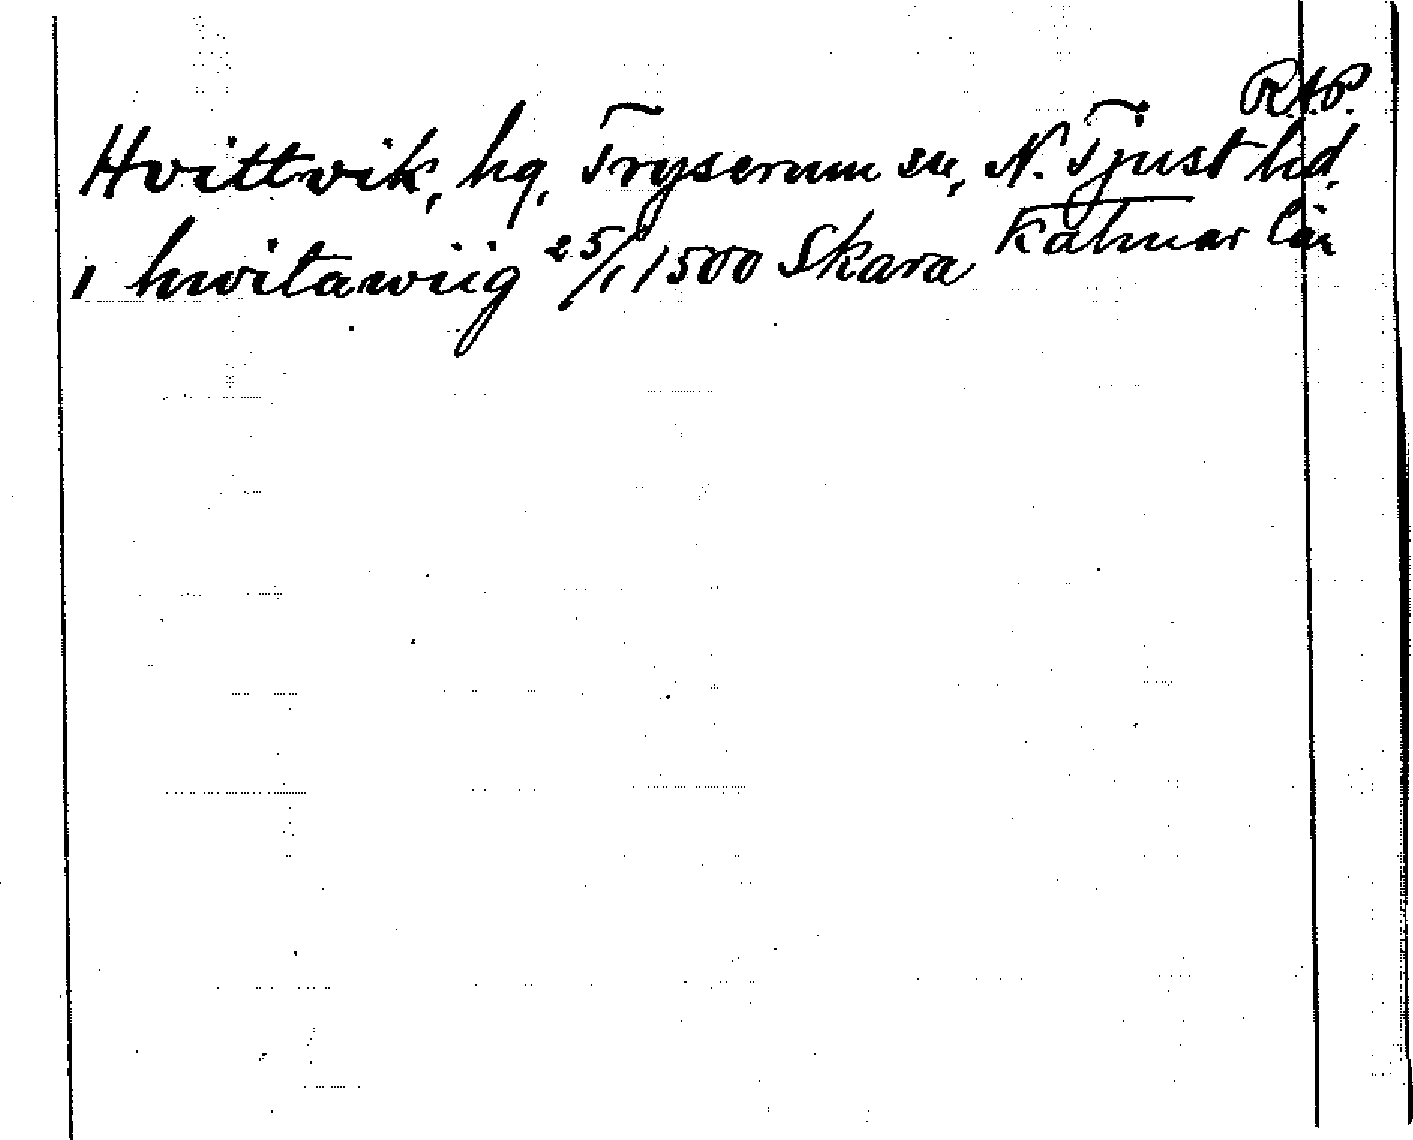 R.A.P.
Hvittvik, hg, Tryserum sn, N. Tjust hd,
Kalmar län
i hwitawiig 25/1 1500 Skara